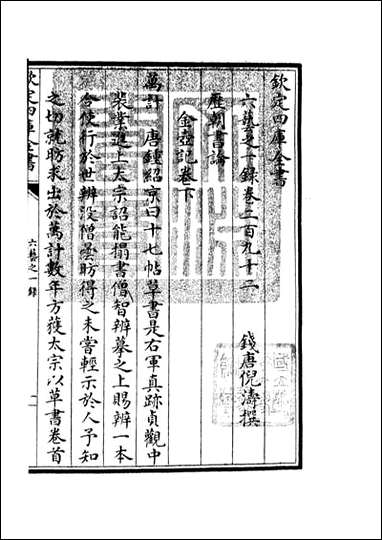 欽定四庫全書
六藝之一錄卷二百九十二
錢唐倪濤撰
歷朝書論
金壺記卷下
萬計 唐鍾紹京曰十七帖草書是右軍真跡貞觀中
裝堂進上太宗詔能搨書僧智辨摹之上賜辨一本
令使行於世辨没僧曇昉得之未嘗輕示於人予知
之切就昉求出於萬計數年方獲太宗以草書卷首
欽定四庫全書
六藝之一錄